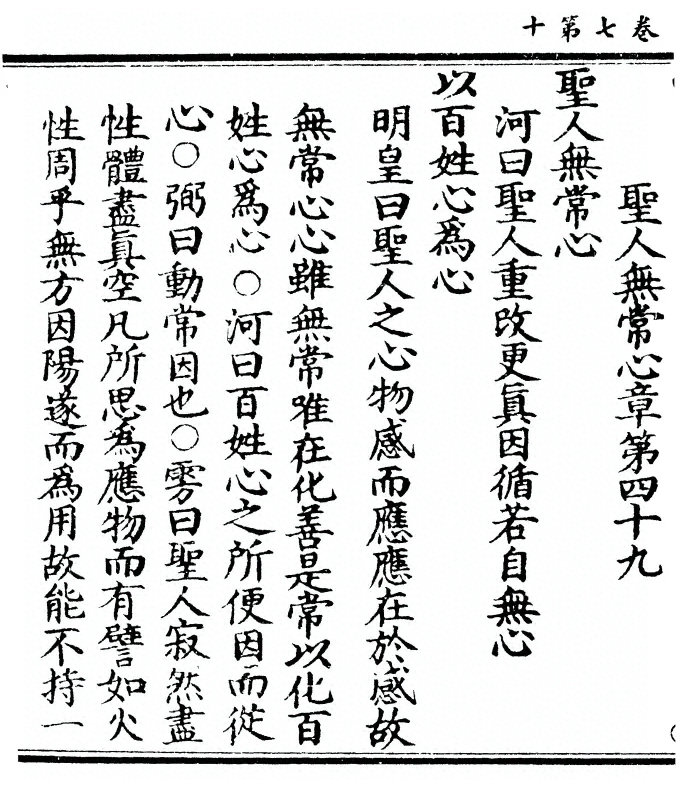 卷七第十
聖人無常心章第四十九
聖人無常心
河曰聖人重改更眞因循若自無心
以百姓心爲心
明皇曰聖人之心物感而應應在於感故
無常心心雖無常唯在化善是常以化百
姓心爲心○河曰百姓心之所便因而從
心○弼曰動常因也○雱曰聖人寂然盡
性體盡眞空凡所思爲應物而有譬如火
性周乎無方因陽遂而爲用故能不持一